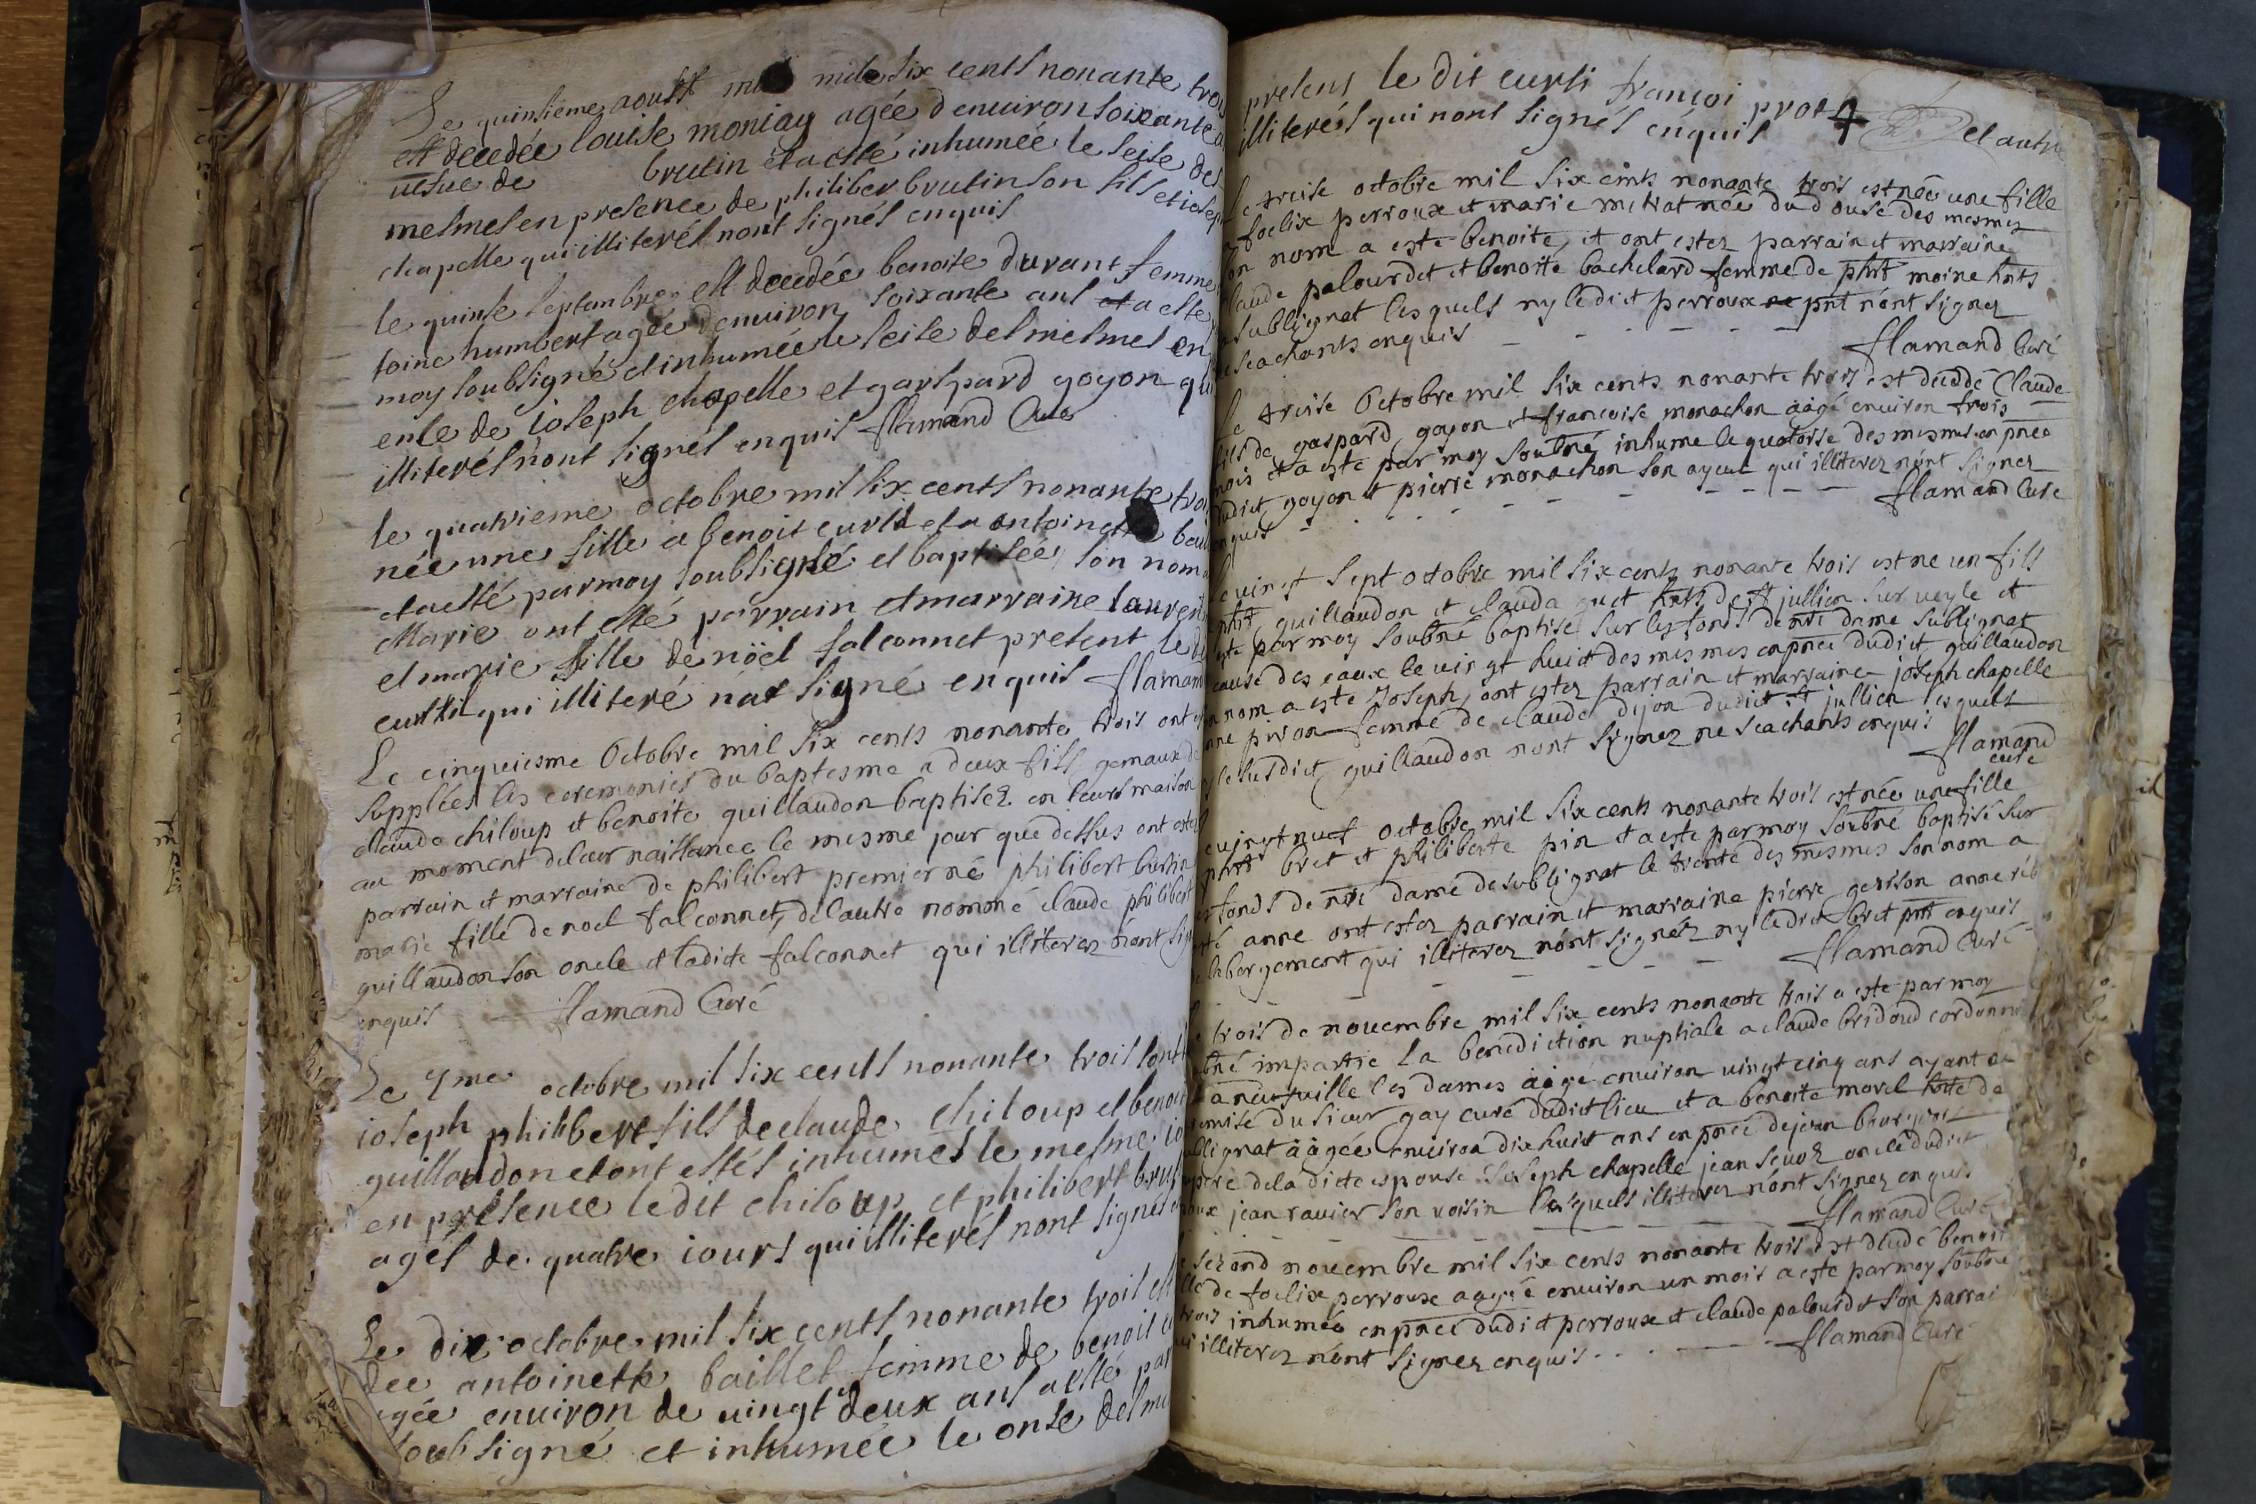 Le quinsieme aoust mil mile six cents nonante trois
est decedée louise moniay agée denuiron soixante
uesue de brutin et a esté inhumée le seise des
mesmes en presence de philiber brutin son fils et ioseph
chapelle qui illiterés nont signés enquis
le quinse septambre est decedée benoite durant femme
toine humbert agée denuiron soixante ans et a esté
moy soubsigné et inhumée le seise des mesmes en
ence de ioseph chapelle et gaspard goyon qui
illiterés nont signés enquis flamand Curé
le quatrieme octobre mil six cents nonante trois
née une fille a benoit curti et a antoinette bail
et a esté par moy soubsigné et baptisée, son nom
Marie ont esté parrain et marraine laurent
et marie fille de nöel falconnet present le dit
curti qui illiteré nat signé enquis flamand
Le cinquiesme Octobre mil six cents nonante trois ont
supplées les ceremonies du baptesme a deux fils gemaux de
claude chiloup et benoite guillaudon baptisez en leurs maison
au moment deleur naissance le mesme jour que dessus ont estez
parrain et marraine de philibert premier né philibert burtin
marie fille de noel falconnet, de lautre nommé claude philibert
guillaudon son oncle et ladicte falconnet qui illiterez nont sign
enquis flamand Curé
Le 7me octobre mil six cents nonante trois sont
ioseph philibert fils de claude chiloup et benoite
guillaudon et ont estés inhumés le mesme io
en presence le dit chiloup et philibert brut
agés de quatre iours qui illiterés nont signés
Le dix octobre mil six cents nonante trois est
dee antoinette baillet femme de benoit cu
agée environ de uingt deux ans a esté par
soubsigné et inhumée le onse des me
presens le dit curti françoi prost et autre
illiterés qui nont signés enquis
Le treise octobre mil six cents nonante trois est née une fille
a foelix perroux et marie mitrat née du douse des mesmes
son nom a este benoite, et ont estez parrain et marraine
claude palourdet et benoite bachelard femme de phrt moine hnts
a sublignat lesquels ny ledict perroux pnt nont signez
ne scachants enquis
flamand Curé
Le treise Octobre mil six cents nonante trois est decedé Claude
fils de gaspard goyon et francoise monachon aàgé enuiron trois
mois et a este par moy soubné inhume le quatorse des mesmes en pnce
dudict goyon et pierre monachon son ayeul qui illiterez nont signez
enquis flamand Cure
Le vingt sept octobre mil six cents nonante trois est ne un fils
a phrt guillaudon et clauda guet hnts de st jullien sur veyle et
este par moy soubné baptise sur les fonds de nre dame sublignat
a cause des eaux le vingt huict des mesmes en pnce dudict guillaudon
son nom a este Joseph, ont estez parrain et marraine joseph chapelle
anne piron femme de claude dyon dudict st jullien lesquels
ny le susdict guillaudon nont signez ne scachants enquis
flamand
curé
Le vingt nuef octobre mil six cents nonante trois est née une fille
a phrt bret et philiberte pin et a este par moy soubné baptisé sur
les fonds de nre dame de sublignat le trente des mesmes son nom a
esté anne ont estez parrain et marraine pierre gerison anne réb
de labergement qui illiterez nont signéz ny ledict bret pnt enquis
flamand Curé
Le trois de nouembre mil six cents nonante trois a este par moy
soubné impartie la benediction nuptiale a claude bridoud cordonnier
a neufuille les dames aàgé enuiron vingt cinq ans ayant eu
remise du sieur gay curé dudict lieu et a benoite morel hnte de
sublignat aàgée enuiron dix huict ans en pnce de jean bourgeois
pere de la dicte espouse Joseph chapelle jean seuoz oncle dudict
espoux jean rauier son voisin lesquels illiterez nont signez enquis
flamand Curé
Le second nouembre mil six cents nonante trois est decedé benoite
fille de foelix perroux aagée enuiron un mois a este par moy soubné
le trois inhumée en pnce dudict perroux et claude palourdet son parrai
qui illiterez nont signez enquis flamand Curé